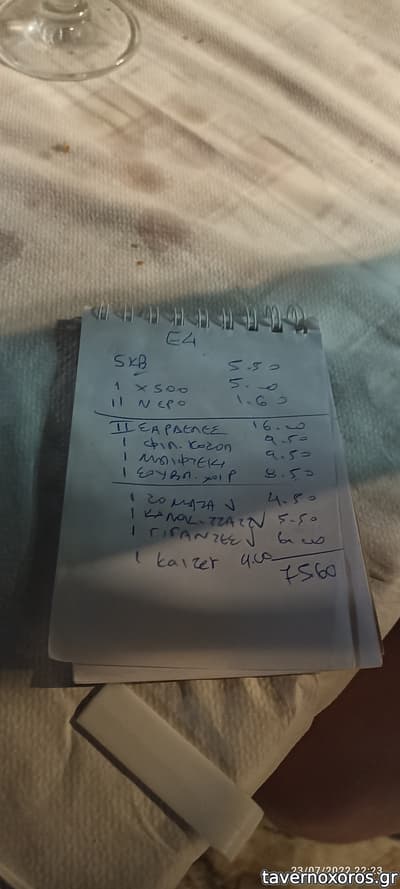 E4
5KB 5.50
1 X500 5.00
II ΝΕΡΟ 1.60
II ΣΑΡΔΕΛΕΣ 16.00
1 ΦΙΛ. ΚΟΤΟΠ 9.50
1 ΜΠΙΦΤΕΚΙ 9.50
1 ΣΟΥΒΛ. ΧΟΙΡ 8.50
1 ΤΟΜΑΤΑ √ 4.50
1 √ 5.50
1 ΓΙΓΑΝΤΕΣ √ 6.00
1 Kaizer 4.00
75.60
23/07/2022 22:23
tavernoxoros.gr